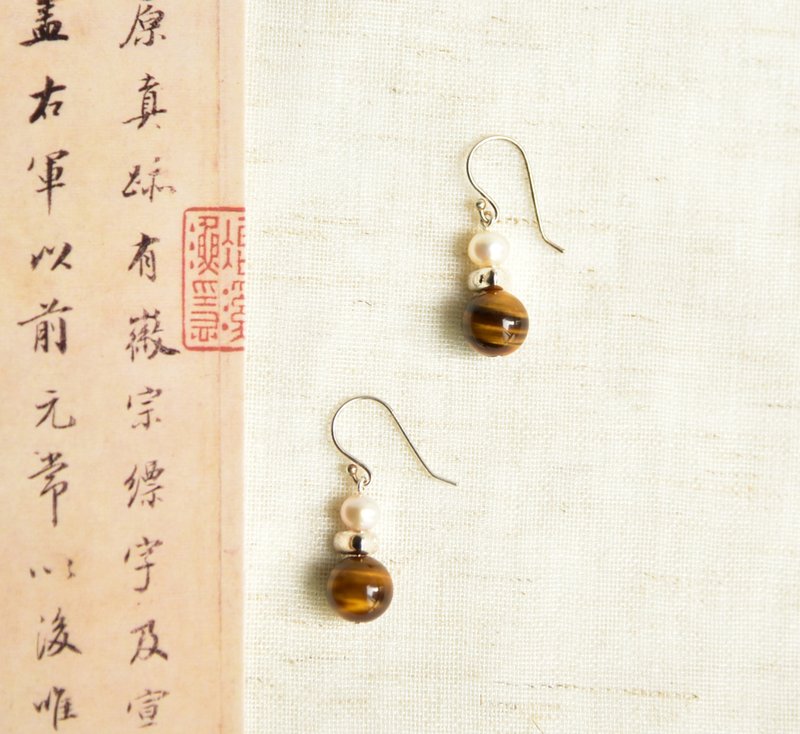 原真跡有徽宗縹字及宣
盖右軍以前元常以後唯